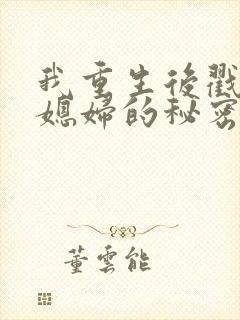 我重生後戳
媳婦的秘密
董雲能